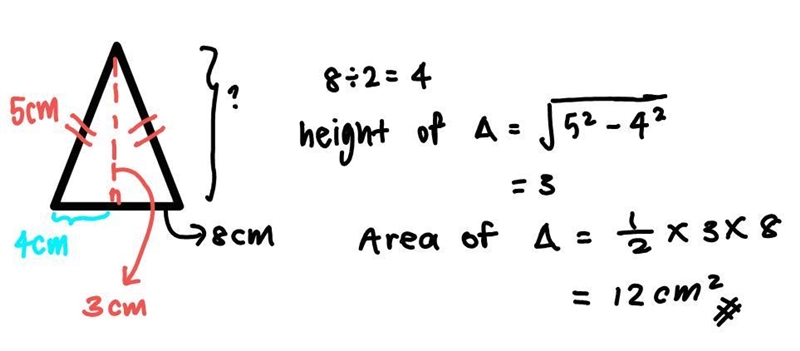 5cm
?
4cm
8cm
3cm
8÷2=4
height of Δ = √5² - 4²
= 3
Area of Δ = 1/2 × 3 × 8
= 12 cm² #